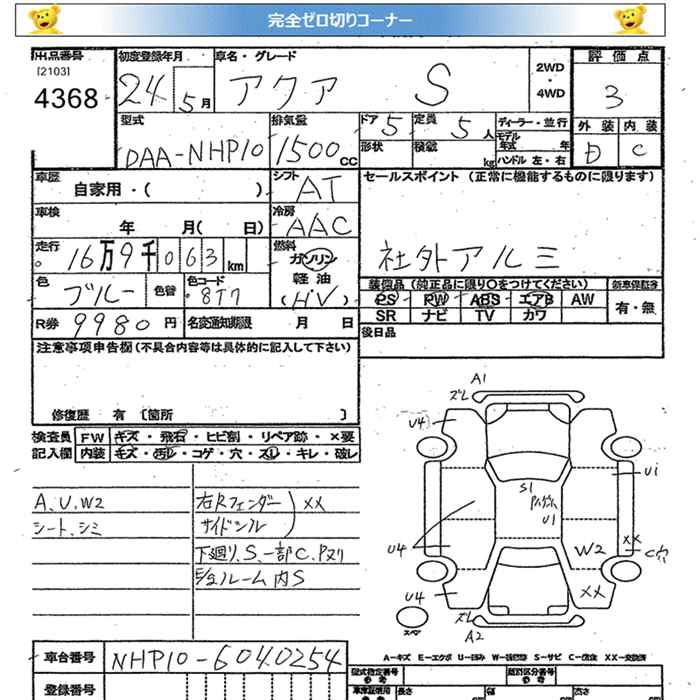 完全ゼロ切りコーナー
出品番号 初度登録年月 車名・グレード 評価点
[2103]
4368 24 5月 アクア S 2WD・4WD 3
型式 排気量 ドア 5 定員 5人 ディーラー・並行 外装 内装
DAA-NHP10 1500cc 形状 積載 kg モデル年式 年 ハンドル 左・右 D C
車歴 自家用・( ) シフト AT セールスポイント (正常に機能するものに限ります)
車検 年 月( 日) 冷房 AAC
走行 16万9千063km 燃料 ガソリン 軽油 (HV) 社外アルミ
色 ブルー 色替 色コード 8T7 装備品 (純正品に限り○をつけてください) 新車保証書
PS PW ABS エアB AW 有・無
R券 9980円 名変通知期限 月 日 SR ナビ TV カワ
注意事項申告欄 (不具合内容等は具体的に記入して下さい) 後日品
修復歴 有 [箇所 ]
検査員 FW キズ・飛石・ヒビ割・リペア跡・×要
記入欄 内装 キズ・汚レ・コゲ・穴・スレ・キレ・破レ
A、U、W2 右Rフェンダー XX
シート、シミ サイドシル
下廻り、S、一部C、Pヌリ
E/gルーム内S
A1
ズレ
U4
U1
S1
U1
U4
W2
XX
XX
U4
ズレ
A2
スペア
A-キズ E-エクボ U-凹み W-補修跡 S-サビ C-腐食 XX-交換済
車台番号 NHP10-6040254 型式指定番号 参考 類別区分番号 参考
登録番号 長さ 幅 高さ